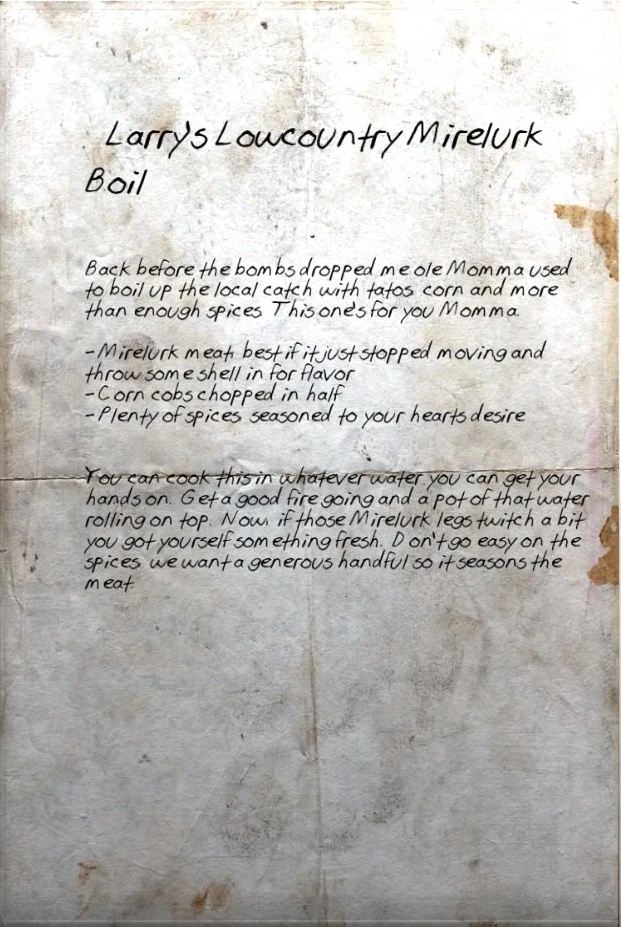 Larry's Lowcountry Mirelurk
Boil
Back before the bombs dropped me ole Momma used
to boil up the local catch with tatos, corn and more
than enough spices. This one's for you Momma.
-Mirelurk meat, best if it just stopped moving and
throw some shell in for flavor
-Corn cobs chopped in half
-Plenty of spices seasoned to your hearts desire
You can cook this in whatever water you can get your
hands on. Get a good fire going and a pot of that water
rolling on top. Now, if those Mirelurk legs twitch a bit
you got yourself something fresh. Don't go easy on the
spices, we want a generous handful so it seasons the
meat.